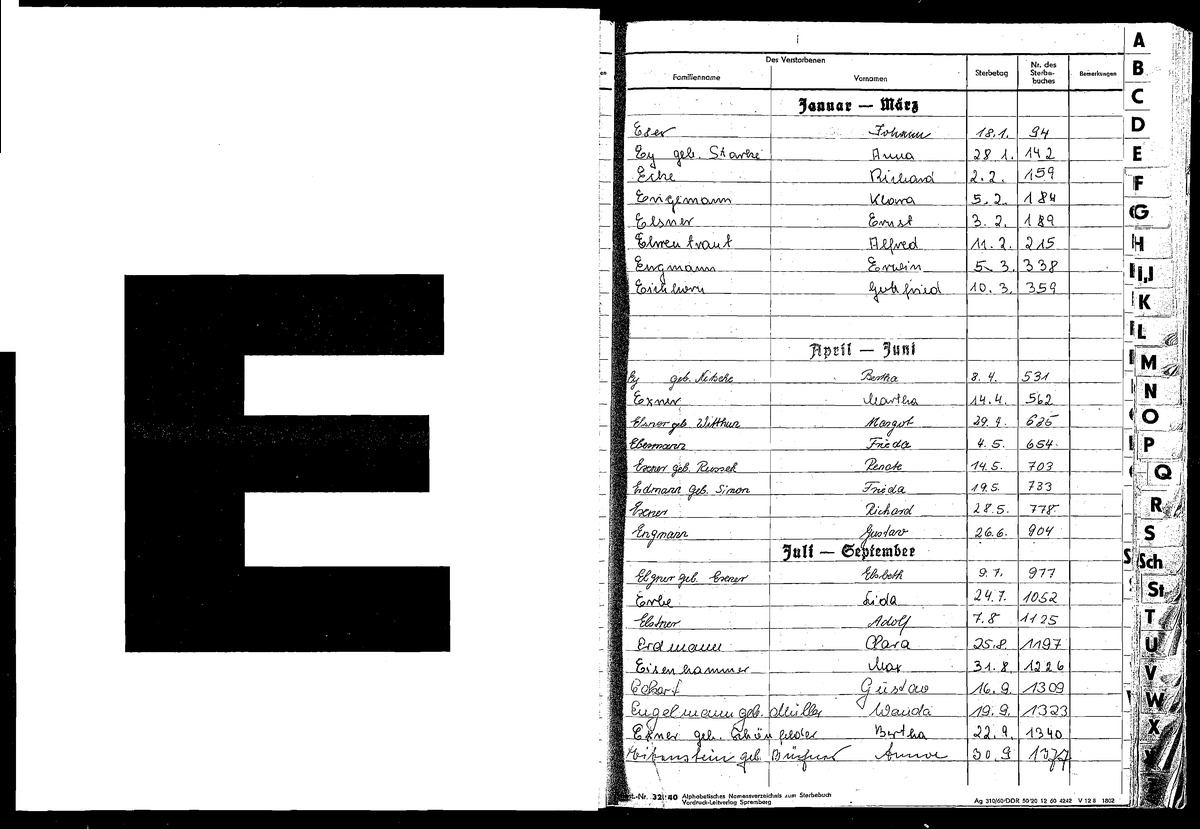 E
Des Verstorbenen
Familienname Vornamen Sterbetag Nr. des Sterbe-buches Bemerkungen
Januar — März
Eser Johann 18.1. 94
Ey geb. Starke Anna 28 1. 142
Eiche Richard 2.2. 159
Engemann Klara 5.2. 184
Elsner Ernst 3.2. 189
Ehrentraut Alfred 11.2. 215
Engmann Erwin 5.3. 338
Eichhorn Gottfried 10.3. 359
April — Juni
Ey geb. Nitsche Bertha 8.4. 531
Exner Martha 14.4. 562
geb. Witthun Margot 29.4. 625
Ebermann Frieda 4.5. 654
Exner geb. Renate 14.5. 703
Erdmann geb. Simon Frieda 19.5. 733
Exner Richard 28.5. 778
Engmann Gustav 26.6. 904
Juli — September
Elgner geb. Exner Elsbeth 9.7. 977
Erbe Lida 24.7. 1052
Elstner Adolf 7.8 1125
Erdmann Clara 25.8. 1197
Eisenhammer Max 31.8. 1226
Eckart Gustav 16.9. 1309
Engelmann geb. Müller Wanda 19.9. 1323
Exner geb. Schönfelder Bertha 22.9. 1340
geb. 30.9
32140 Alphabetisches Namensverzeichnis zum Sterbebuch
Vordruck-Leitverlag Spremberg
Ag 310/60/DDR 50 20 12 60 4242 V 12 8 1802
A
B
C
D
E
F
G
H
I,J
K
L
M
N
O
P
Q
R
S
Sch
St
T
U
V
W
X